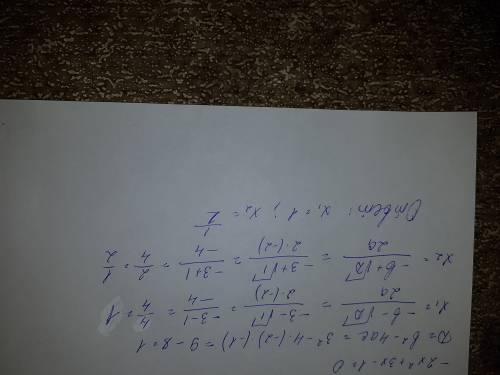 -2x²+3x-1=0
D=b²-4ac=3²-4·(-2)·(-1)=9-8=1
x₁ = (-b-√D)/2a = (-3-√1)/(2·(-2)) = (-3-1)/-4 = 4/4 = 1
x₂ = (-b+√D)/2a = (-3+√1)/(2·(-2)) = (-3+1)/-4 = 2/4 = 1/2
Ответ: x₁=1; x₂=1/2